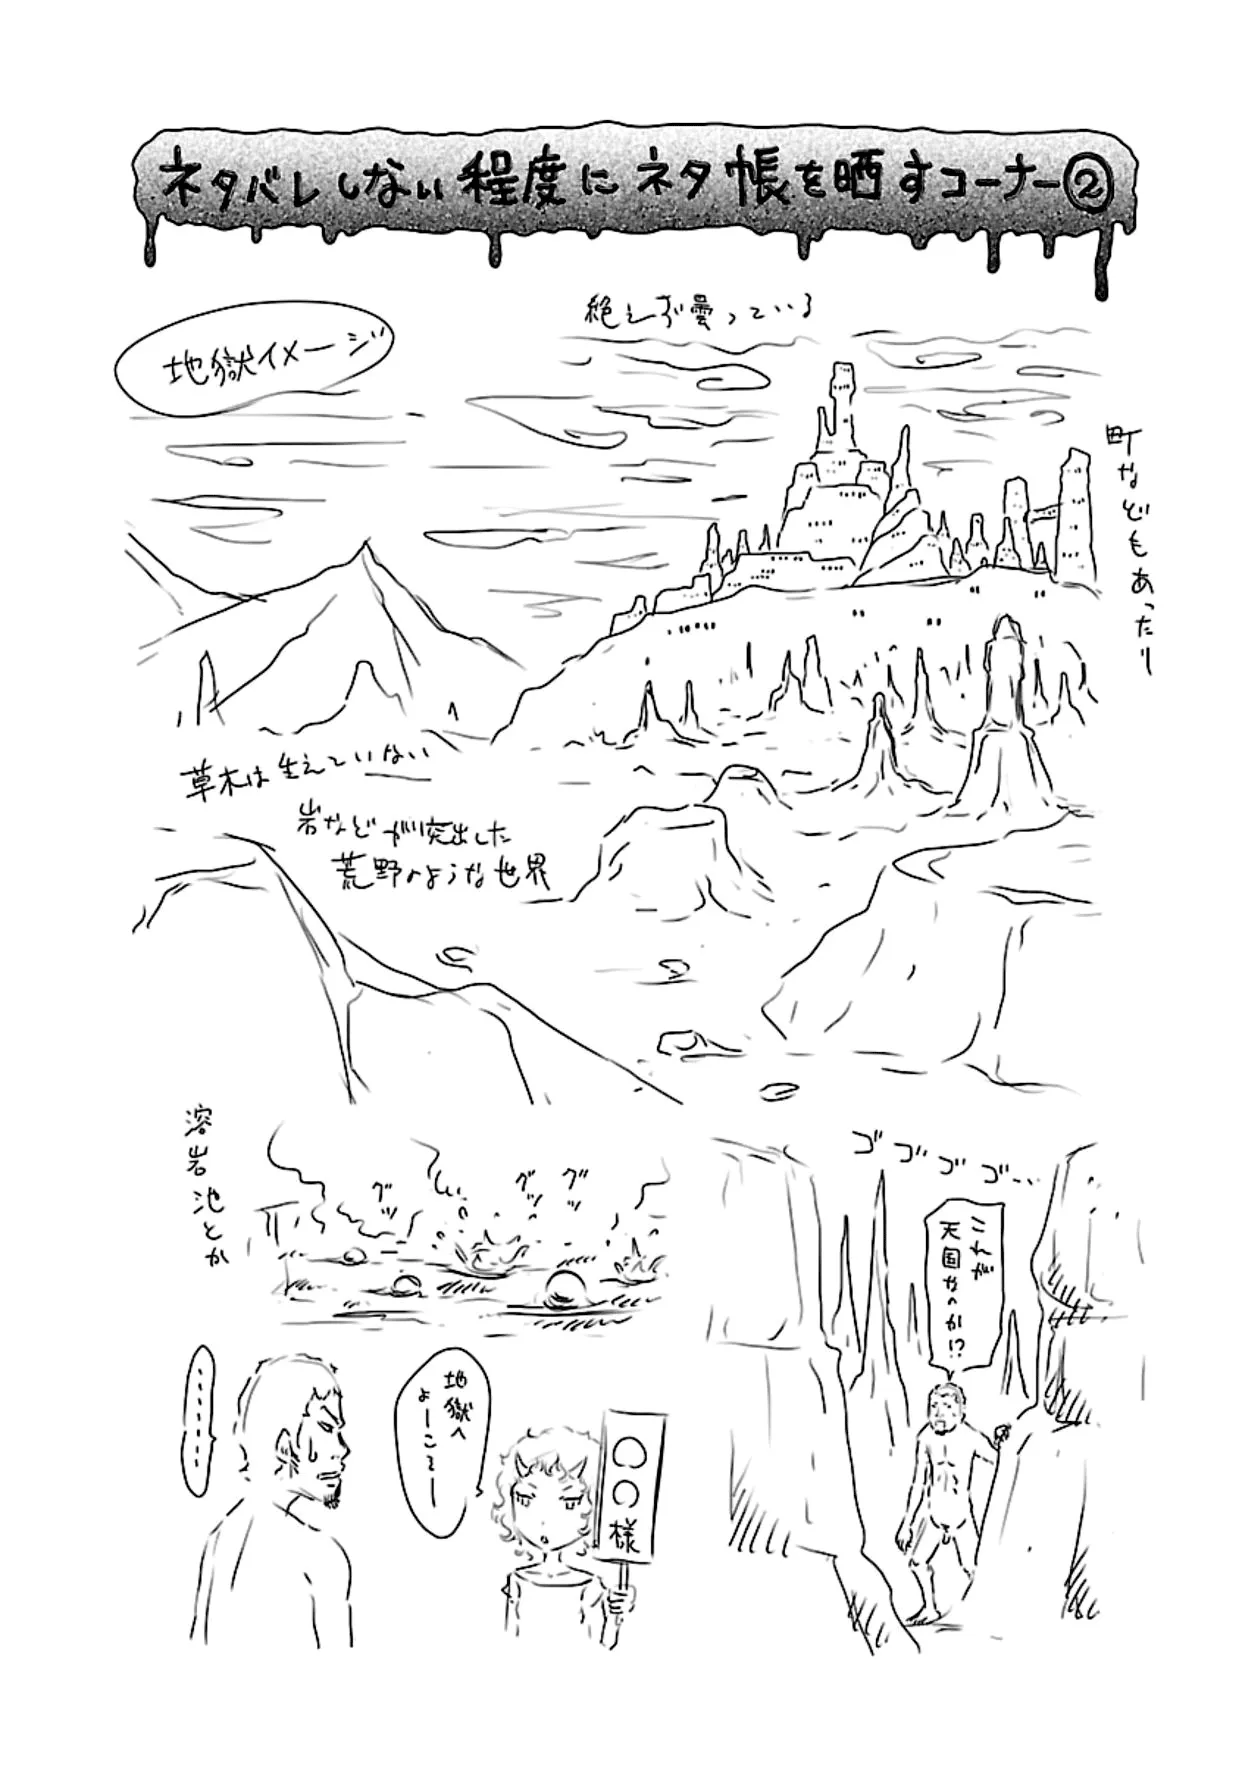 ネタバレしない程度にネタ帳を晒すコーナー②
地獄イメージ
絶えず曇っている
町などもあったり
草木は生えていない
岩などが突出した
荒野のような世界
溶岩池とか
グツ
グツ
グツ
ゴゴゴゴ…
これが
天国なのか!?
………
地獄へ
よーこそー
〇〇様